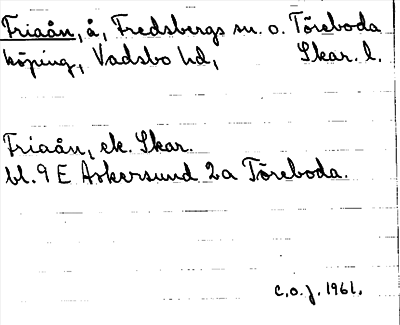 Friaån, å, Fredsbergs sn. o. Töreboda
köping, Vadsbo hd, Skar. l.
Friaån, ek. Skar.
bl. 9 E Askersund 2a Töreboda.
C.o.j. 1961.